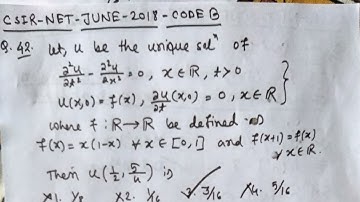 CSIR-NET-JUNE-2018-CODE B
Q.42. Let, u be the unique solⁿ of
∂²u/∂t² - ∂²u/∂x² = 0, x∈ℝ, t>0
u(x,0) = f(x), ∂u/∂t(x,0) = 0, x∈ℝ }
where f: ℝ→ℝ be defined as
f(x) = x(1-x) ∀ x∈[0,1] and f(x+1) = f(x)
∀ x∈ℝ.
Then u(1/2, 5/4) is
1. 1/8 2. 1/16 3. 3/16 4. 5/16